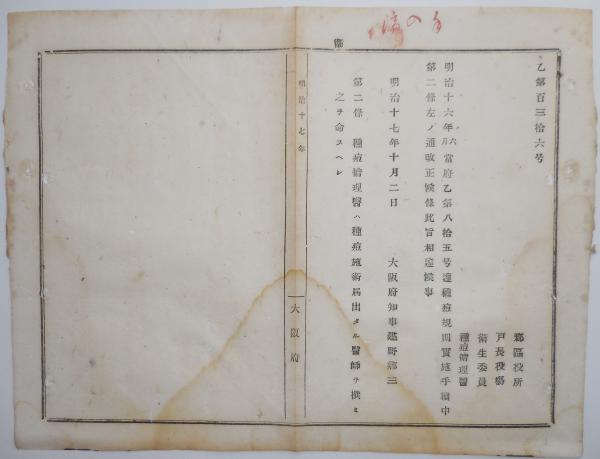 衛
乙第百三拾六号
郡區役所
戸長役場
衛生委員
種痘繪理醫
明治十六年六月當府乙第八拾五号達種痘規則實施手續中
第二條左ノ通改正候條此旨相達候事
明治十七年十月二日
大阪府知事建野郷三
第二條 種痘繪理醫ハ種痘施術届出タル醫師ヲ撰ミ
之ヲ命スヘシ
明治十七年
大阪府